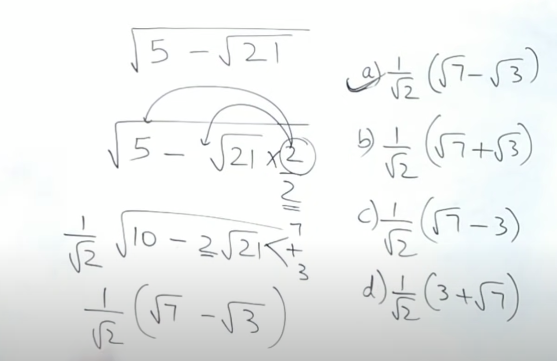 √(5 − √21)
√(5 − √21 × 2/2)
1/√2 √(10 − 2√21) < 7 + 3
1/√2 (√7 − √3)
a) 1/√2 (√7 − √3)
b) 1/√2 (√7 + √3)
c) 1/√2 (√7 − 3)
d) 1/√2 (3 + √7)